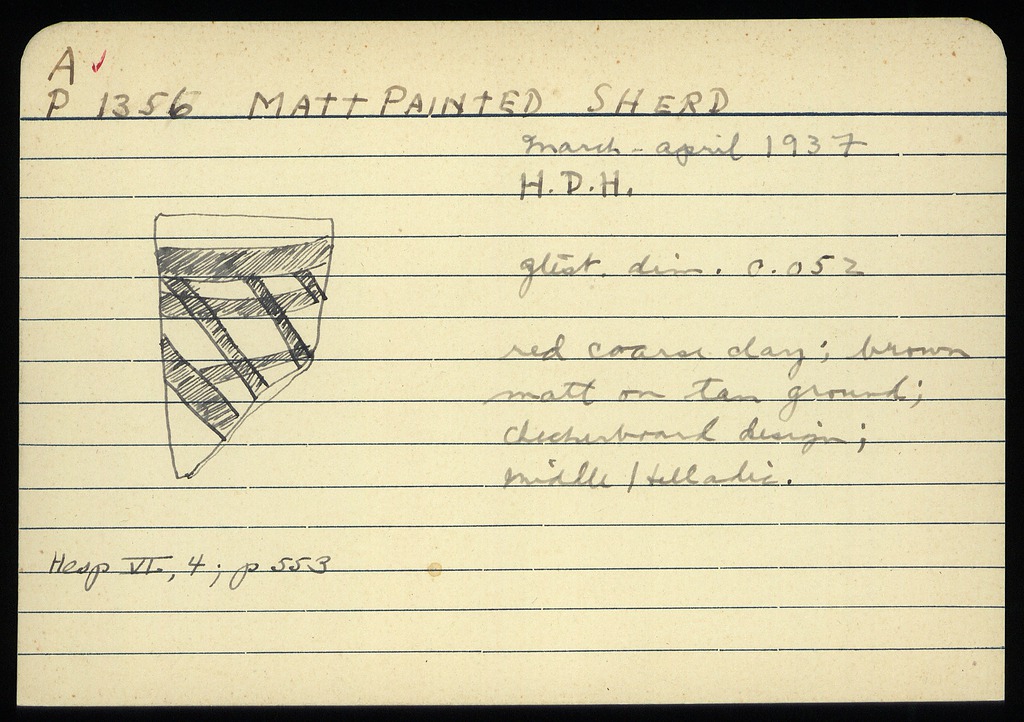 A ✓
P 1356 MATT PAINTED SHERD
March - April 1937
H.D.H.
gtest. dim. 0.052
red coarse clay; brown
matt on tan ground;
checkerboard design;
Middle Helladic.
Hesp VI, 4; p 553